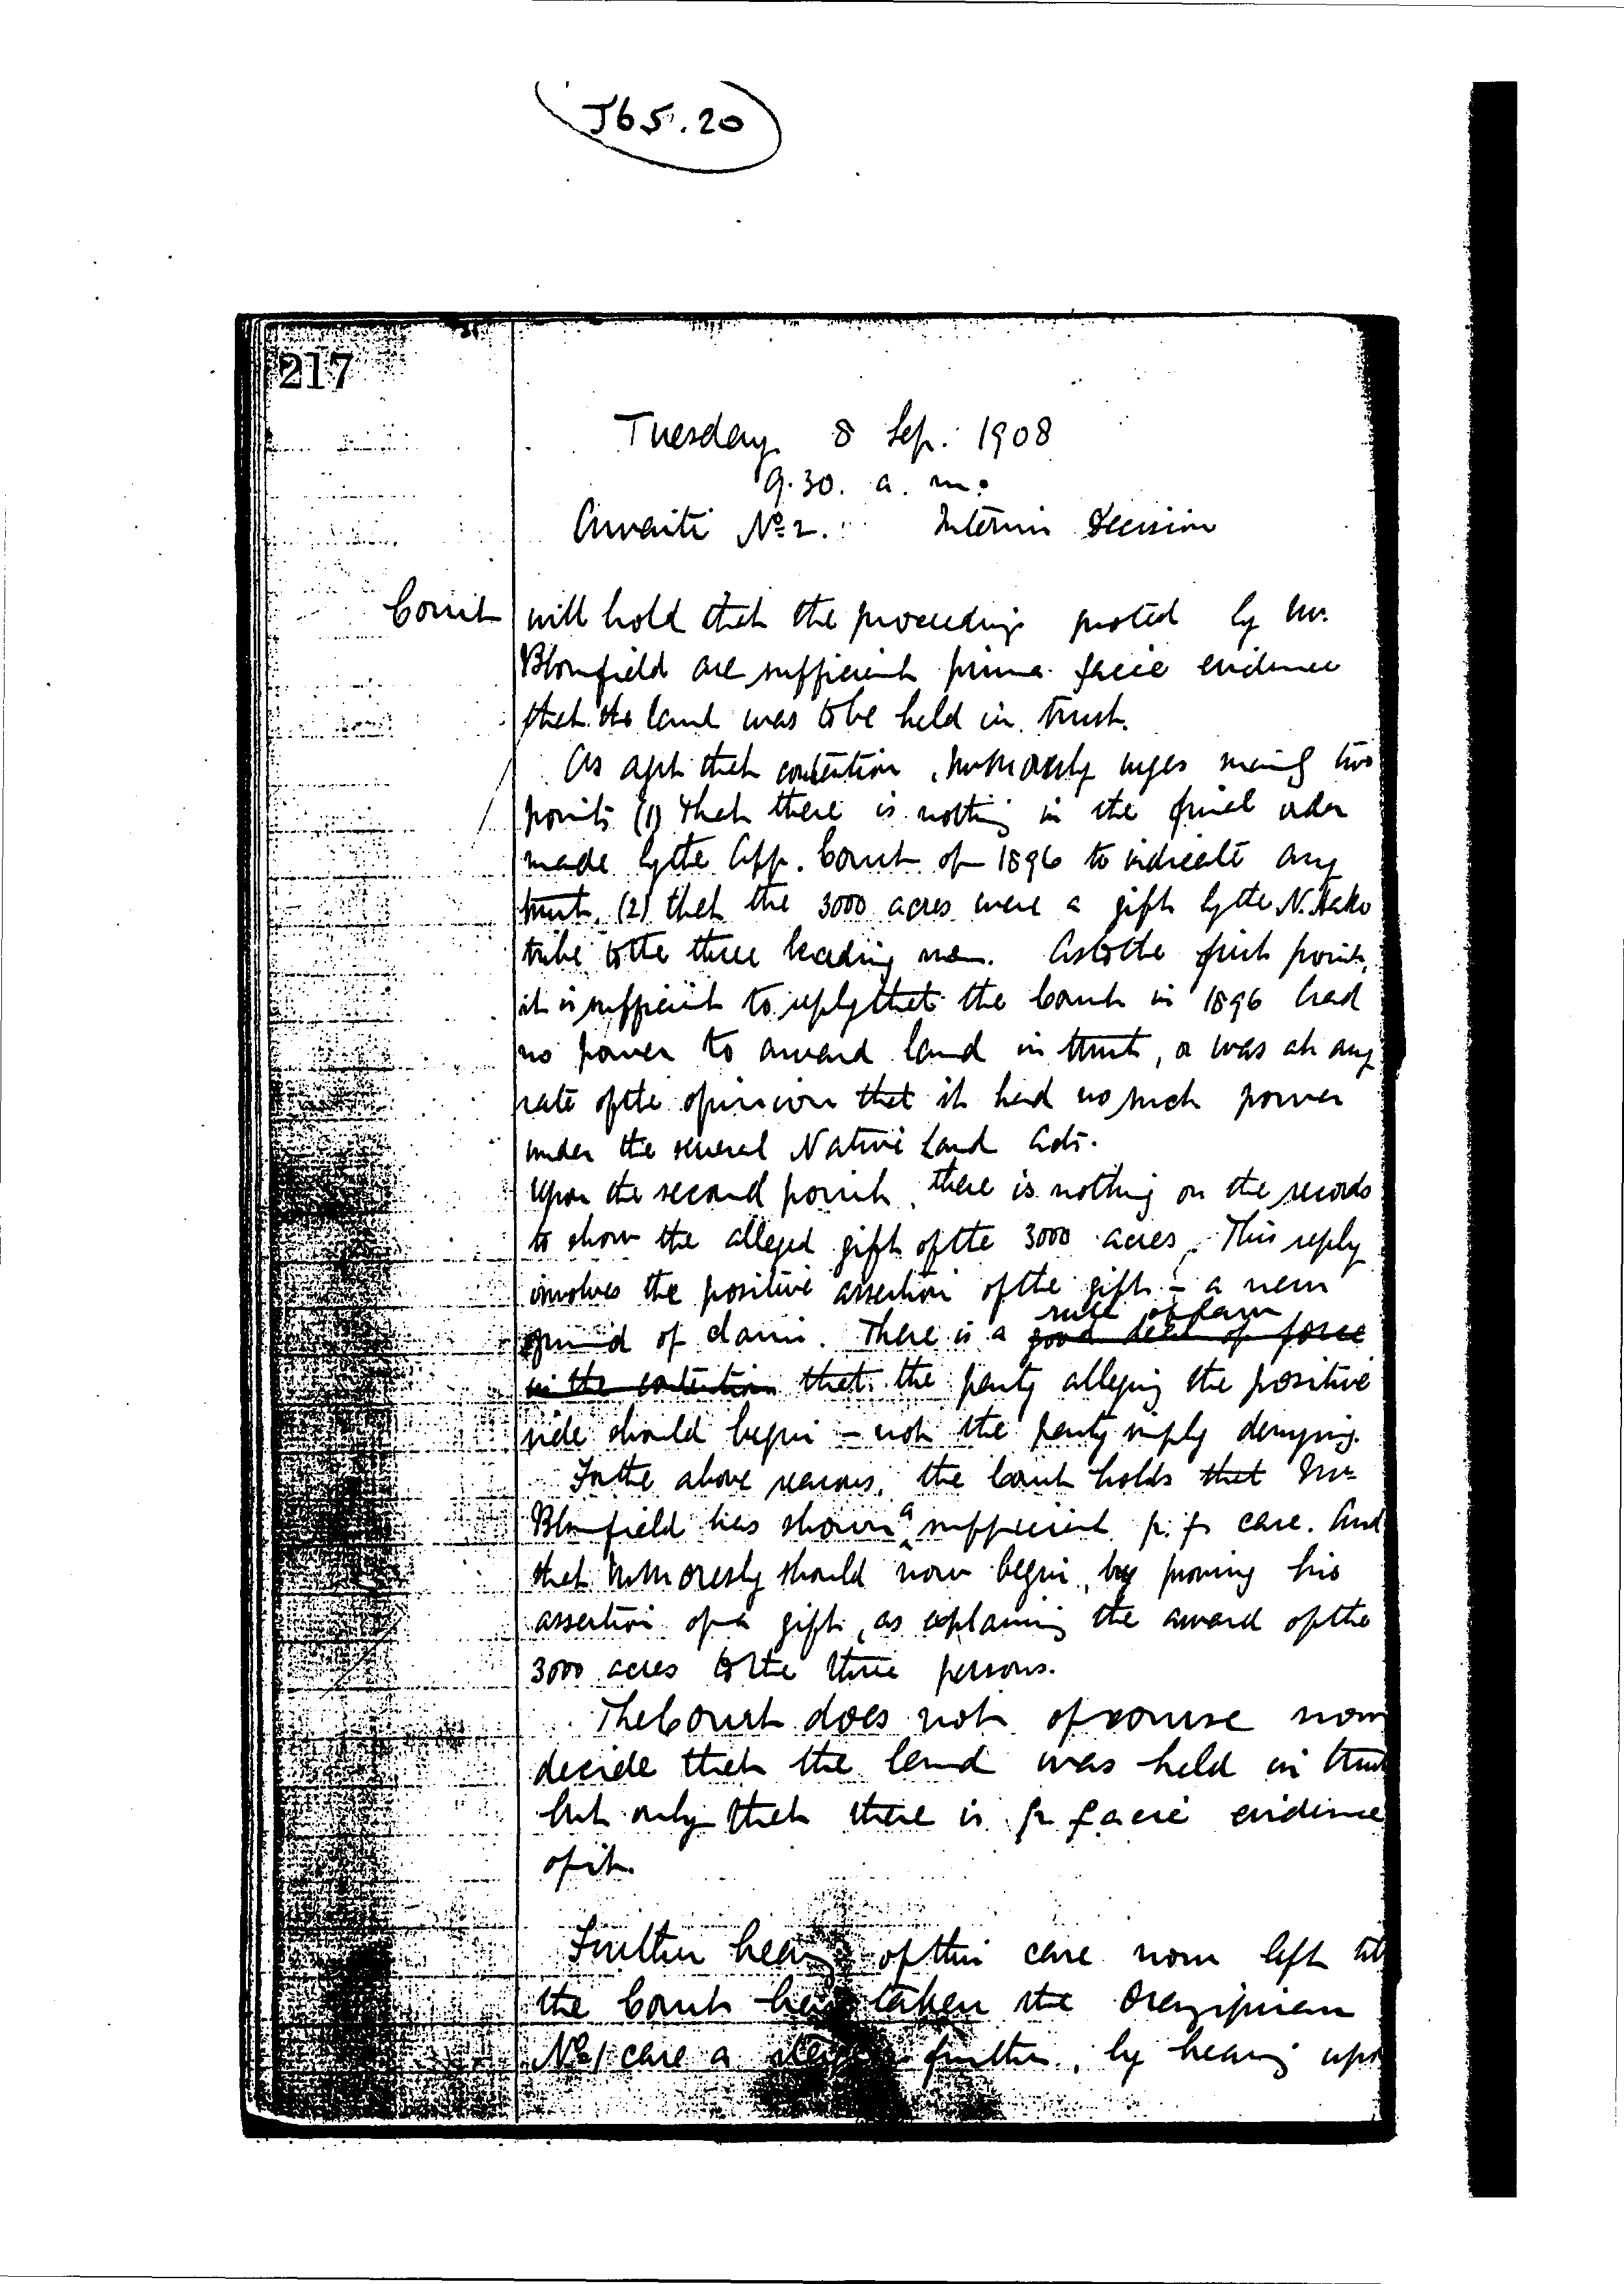 J65.20
217
Tuesday 8 Sep. 1908
9.30. a. m.
Awaiti No 2. Interim Decision
Court will hold that the proceedings quoted by Mr.
Blomfield are sufficient prima facie evidence
that the land was to be held in trust.
As agst that contention, Mr Moresby urges mainly two
points (1) that there is nothing in the final order
made by the App. Court of 1896 to indicate any
trust, (2) that the 3000 acres were a gift by the N. Hako
tribe to the three leading men. As to the first point,
it is sufficient to reply that the Court in 1896 had
no power to award land in trust, or was at any
rate of the opinion that it had no such power
under the several Native Land Acts.
Upon the second point, there is nothing on the records
to show the alleged gift of the 3000 acres. This reply
involves the positive assertion of the gift - a new
rule of law
ground of claim. There is a good deal of force
in the contention that the party alleging the positive
side should begin - not the party simply denying.
For the above reasons, the Court holds that Mr
Blomfield has shown a sufficient p. f. case. And
that Mr Moresby should now begin, by proving his
assertion of a gift, as explaining the award of the
3000 acres to the three persons.
The Court does not of course now
decide that the land was held in trust
but only that there is pr facie evidence
of it.
Further hearing of this case now left till
the Court has taken the
No 1 case a stage further, by hearing upon